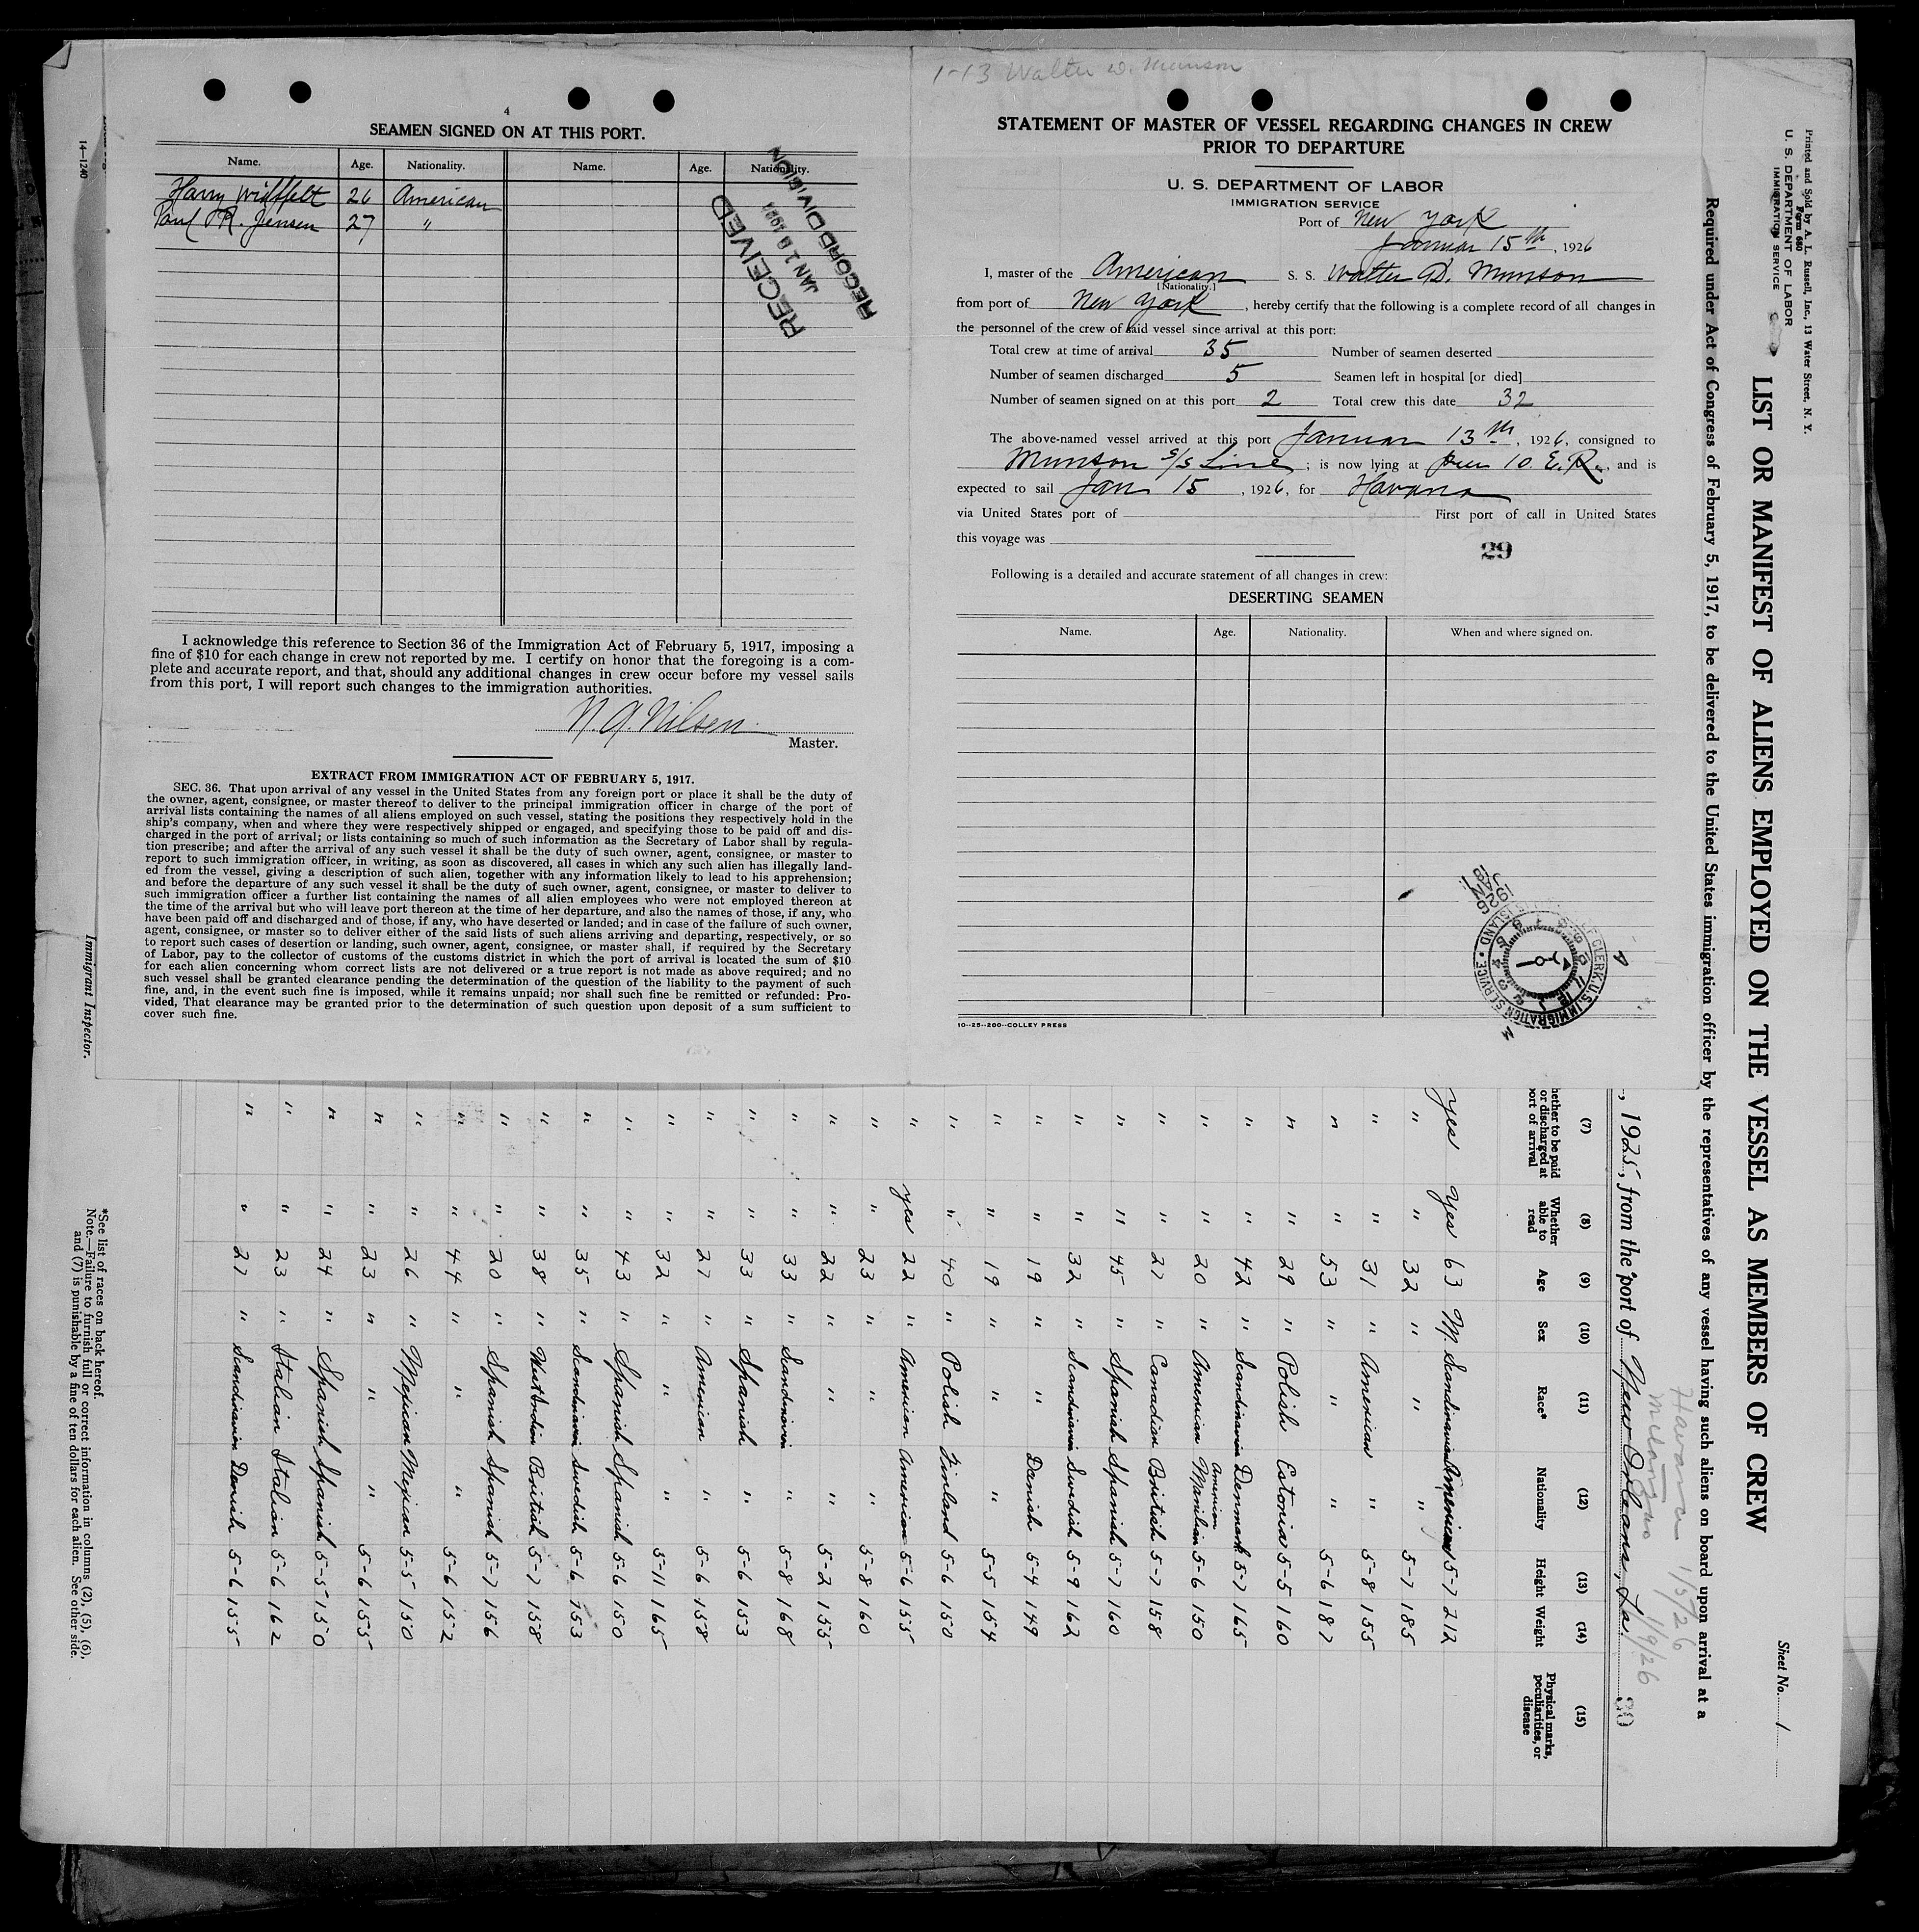 4
SEAMEN SIGNED ON AT THIS PORT.
Name. Age. Nationality. Name. Age. Nationality.
Harry 26 American
Paul R. Jensen 27 "
RECEIVED
JAN 1
RECORD DIVISION
I acknowledge this reference to Section 36 of the Immigration Act of February 5, 1917, imposing a
fine of $10 for each change in crew not reported by me. I certify on honor that the foregoing is a com-
plete and accurate report, and that, should any additional changes in crew occur before my vessel sails
from this port, I will report such changes to the immigration authorities.
N. A. Nilsen
Master.
EXTRACT FROM IMMIGRATION ACT OF FEBRUARY 5, 1917.
SEC. 36. That upon arrival of any vessel in the United States from any foreign port or place it shall be the duty of
the owner, agent, consignee, or master thereof to deliver to the principal immigration officer in charge of the port of
arrival lists containing the names of all aliens employed on such vessel, stating the positions they respectively hold in the
ship's company, when and where they were respectively shipped or engaged, and specifying those to be paid off and dis-
charged in the port of arrival; or lists containing so much of such information as the Secretary of Labor shall by regula-
tion prescribe; and after the arrival of any such vessel it shall be the duty of such owner, agent, consignee, or master to
report to such immigration officer, in writing, as soon as discovered, all cases in which any such alien has illegally land-
ed from the vessel, giving a description of such alien, together with any information likely to lead to his apprehension;
and before the departure of any such vessel it shall be the duty of such owner, agent, consignee, or master to deliver to
such immigration officer a further list containing the names of all alien employees who were not employed thereon at
the time of the arrival but who will leave port thereon at the time of her departure, and also the names of those, if any, who
have been paid off and discharged and of those, if any, who have deserted or landed; and in case of the failure of such owner,
agent, consignee, or master so to deliver either of the said lists of such aliens arriving and departing, respectively, or so
to report such cases of desertion or landing, such owner, agent, consignee, or master shall, if required by the Secretary
of Labor, pay to the collector of customs of the customs district in which the port of arrival is located the sum of $10
for each alien concerning whom correct lists are not delivered or a true report is not made as above required; and no
such vessel shall be granted clearance pending the determination of the question of the liability to the payment of such
fine, and, in the event such fine is imposed, while it remains unpaid; nor shall such fine be remitted or refunded: Pro-
vided, That clearance may be granted prior to the determination of such question upon deposit of a sum sufficient to
cover such fine.
1-13 Walter D. Munson
STATEMENT OF MASTER OF VESSEL REGARDING CHANGES IN CREW
PRIOR TO DEPARTURE
U. S. DEPARTMENT OF LABOR
IMMIGRATION SERVICE
Port of New York
Januar 15th, 1926
I, master of the American S. S. Walter D. Munson
[Nationality.]
from port of New York, hereby certify that the following is a complete record of all changes in
the personnel of the crew of said vessel since arrival at this port:
Total crew at time of arrival 35 Number of seamen deserted
Number of seamen discharged 5 Seamen left in hospital [or died]
Number of seamen signed on at this port 2 Total crew this date 32
The above-named vessel arrived at this port Januar 13th, 1926, consigned to
Munson S/S Line; is now lying at pier 10 E.R., and is
expected to sail Jan 15, 1926, for Havana
via United States port of First port of call in United States
this voyage was
29
Following is a detailed and accurate statement of all changes in crew:
DESERTING SEAMEN
Name. Age. Nationality. When and where signed on.
10--25--200--COLLEY PRESS
CLERK U.S. IMMIGRATION SERVICE
Printed and Sold by A. L. Russell, Inc., 13 Water Street, N. Y.
Form 680
U. S. DEPARTMENT OF LABOR
IMMIGRATION SERVICE
Sheet No. 1
LIST OR MANIFEST OF ALIENS EMPLOYED ON THE VESSEL AS MEMBERS OF CREW
Required under Act of Congress of February 5, 1917, to be delivered to the United States immigration officer by the representatives of any vessel having such aliens on board upon arrival at a
Havana 1/5/26
1/9/26
, 1925, from the port of New Orleans, La. 30
(7) (8) (9) (10) (11) (12) (13) (14) (15)
hether to be paid or discharged at port of arrival Whether able to read Age Sex Race* Nationality Height Weight Physical marks, peculiarities, or disease
yes yes 63 M. Scandinavian American 5-7 212
" " 32 " " " 5-7 185
" " 31 " American " 5-8 155
" " 53 " " " 5-6 187
" " 29 " Polish Estonia 5-5 160
" " 42 " Scandinavian Denmark 5-7 165
" " 20 " American American Manilian 5-6 150
" " 27 " Canadian British 5-7 158
" " 45 " Spanish Spanish 5-7 160
" " 32 " Scandinavian Swedish 5-9 162
" " 19 " " Danish 5-4 149
" " 19 " " " 5-5 154
" " 40 " Polish Finland 5-6 150
" yes 22 " American American 5-6 155
" " 23 " " " 5-8 160
" " 22 " " " 5-2 155
" " 33 " Scandinavian " 5-8 168
" " 33 " Spanish " 5-6 153
" " 27 " American " 5-6 158
" " 32 " " " 5-11 165
" " 43 " Spanish Spanish 5-6 150
" " 35 " Scandinavian Swedish 5-6 153
" " 38 " West Indian British 5-7 158
" " 20 " Spanish Spanish 5-7 156
" " 44 " " " 5-6 152
" " 26 " Mexican Mexican 5-5 150
" " 23 " " " 5-6 155
" " 24 " Spanish Spanish 5-5 150
" " 23 " Italian Italian 5-6 162
" " 27 " Scandinavian Danish 5-6 155
*See list of races on back hereof.
Note.—Failure to furnish full or correct information in columns (2), (5), (6),
and (7) is punishable by a fine of ten dollars for each alien. See other side.
Immigrant Inspector.
14-1240